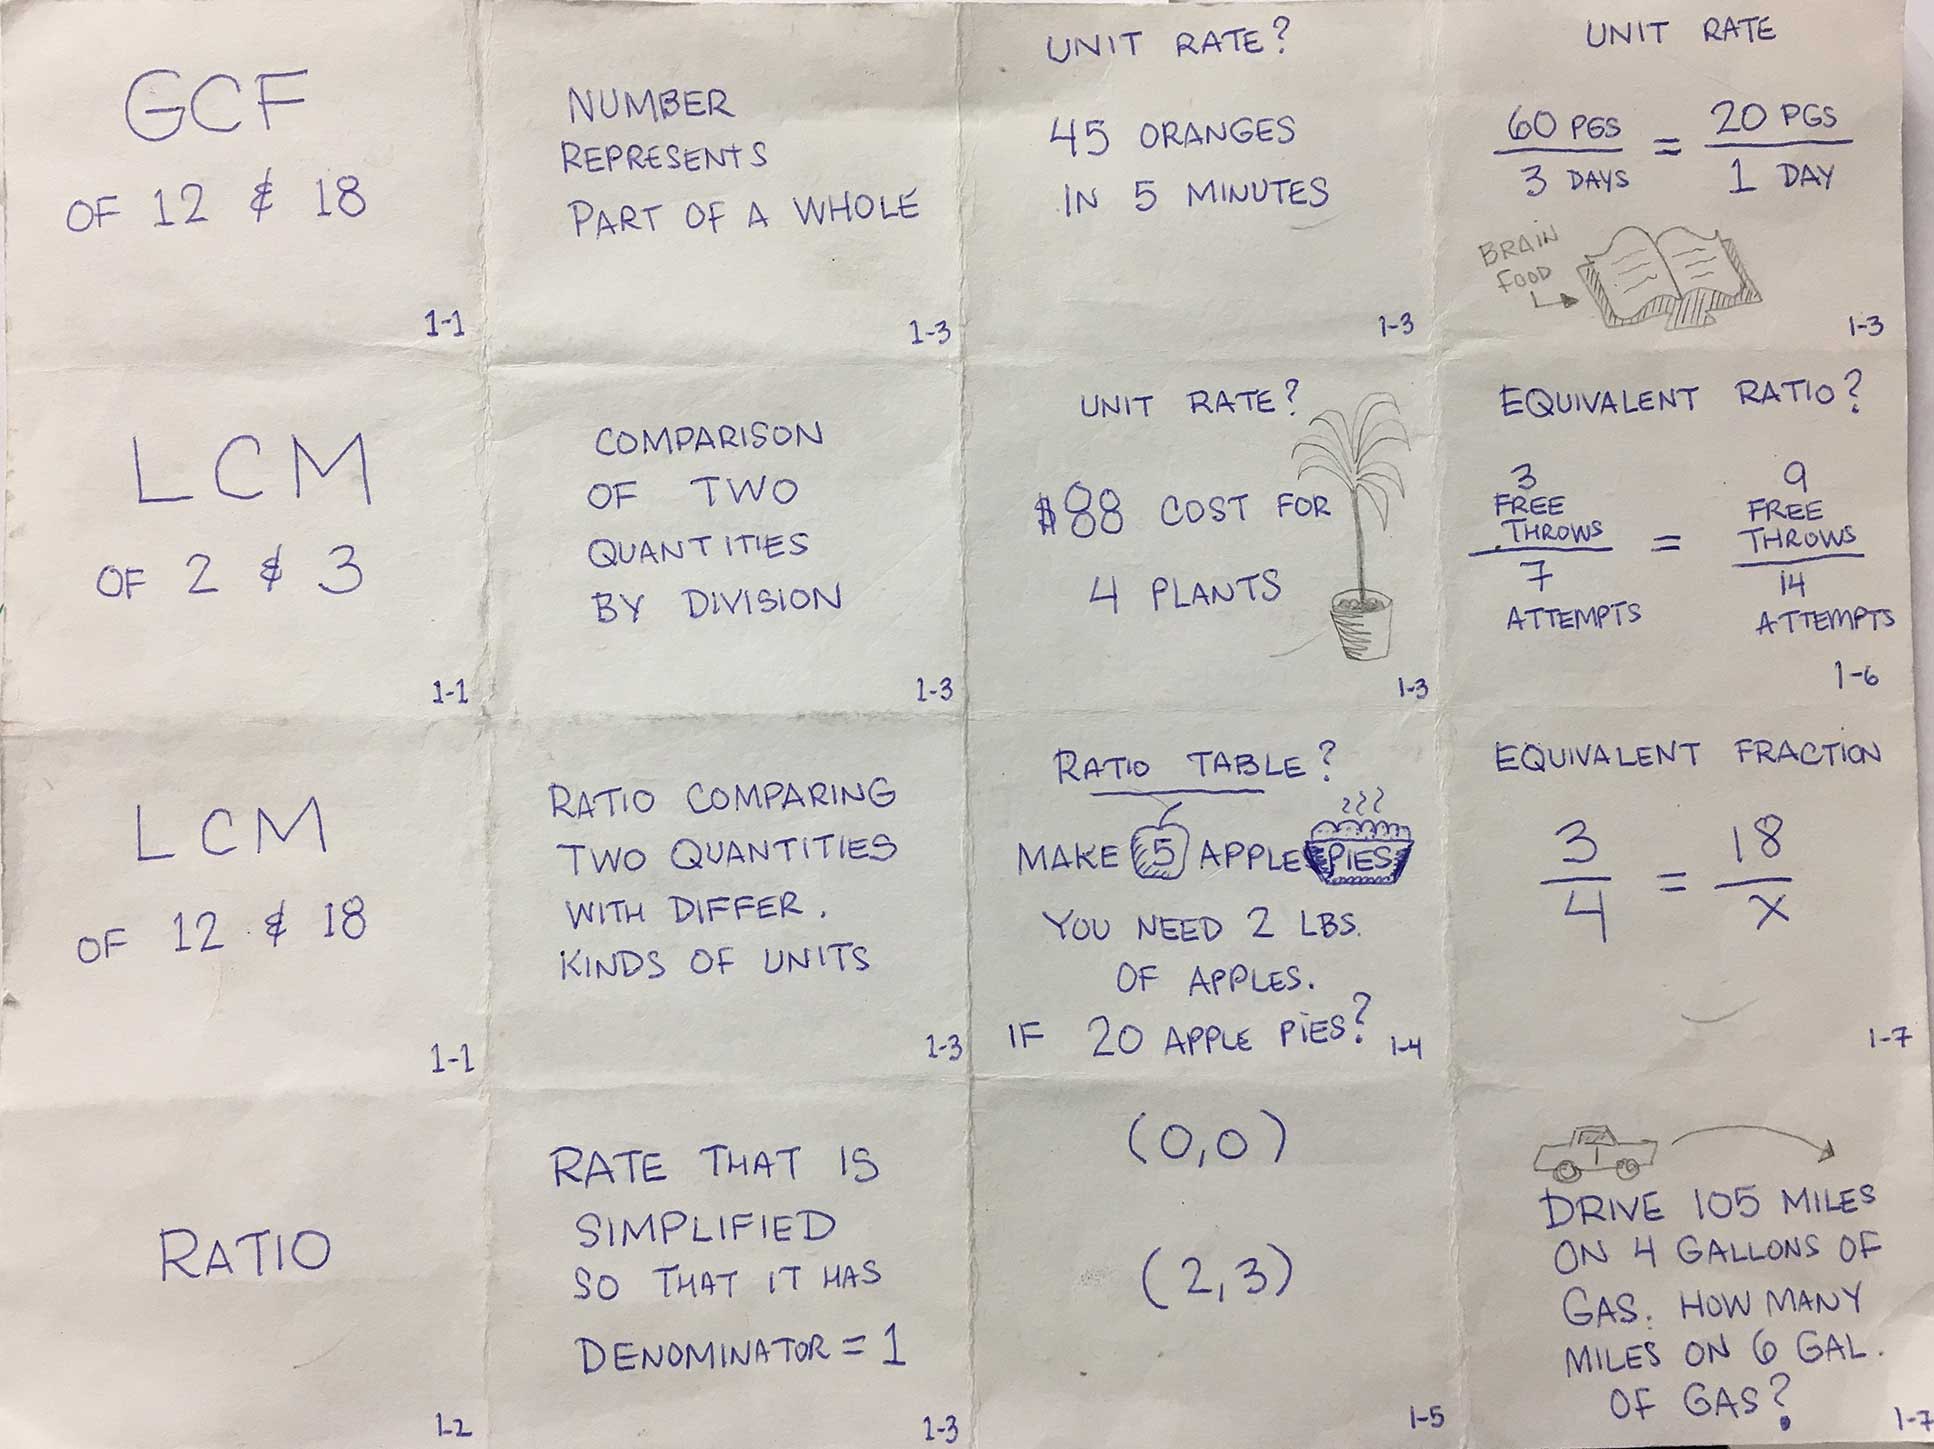 GCF
OF 12 & 18
1-1
NUMBER
REPRESENTS
PART OF A WHOLE
1-3
UNIT RATE?
45 ORANGES
IN 5 MINUTES
1-3
UNIT RATE
60 PGS / 3 DAYS = 20 PGS / 1 DAY
BRAIN
FOOD
1-3
LCM
OF 2 & 3
1-1
COMPARISON
OF TWO
QUANTITIES
BY DIVISION
1-3
UNIT RATE?
$88 COST FOR
4 PLANTS
1-3
EQUIVALENT RATIO?
3 FREE THROWS / 7 ATTEMPTS = 9 FREE THROWS / 14 ATTEMPTS
1-6
LCM
OF 12 & 18
1-1
RATIO COMPARING
TWO QUANTITIES
WITH DIFFER.
KINDS OF UNITS
1-3
RATIO TABLE?
MAKE 5 APPLE PIES
YOU NEED 2 LBS.
OF APPLES.
IF 20 APPLE PIES?
1-4
EQUIVALENT FRACTION
3/4 = 18/X
1-7
RATIO
1-2
RATE THAT IS
SIMPLIFIED
SO THAT IT HAS
DENOMINATOR = 1
1-3
(0,0)
(2,3)
1-5
DRIVE 105 MILES
ON 4 GALLONS OF
GAS. HOW MANY
MILES ON 6 GAL.
OF GAS?
1-7